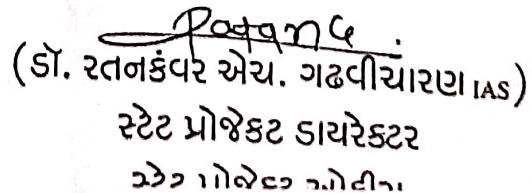 (ડૉ. રતનકંવર એચ. ગઢવીચારણ IAS)
સ્ટેટ પ્રોજેકટ ડાયરેકટર